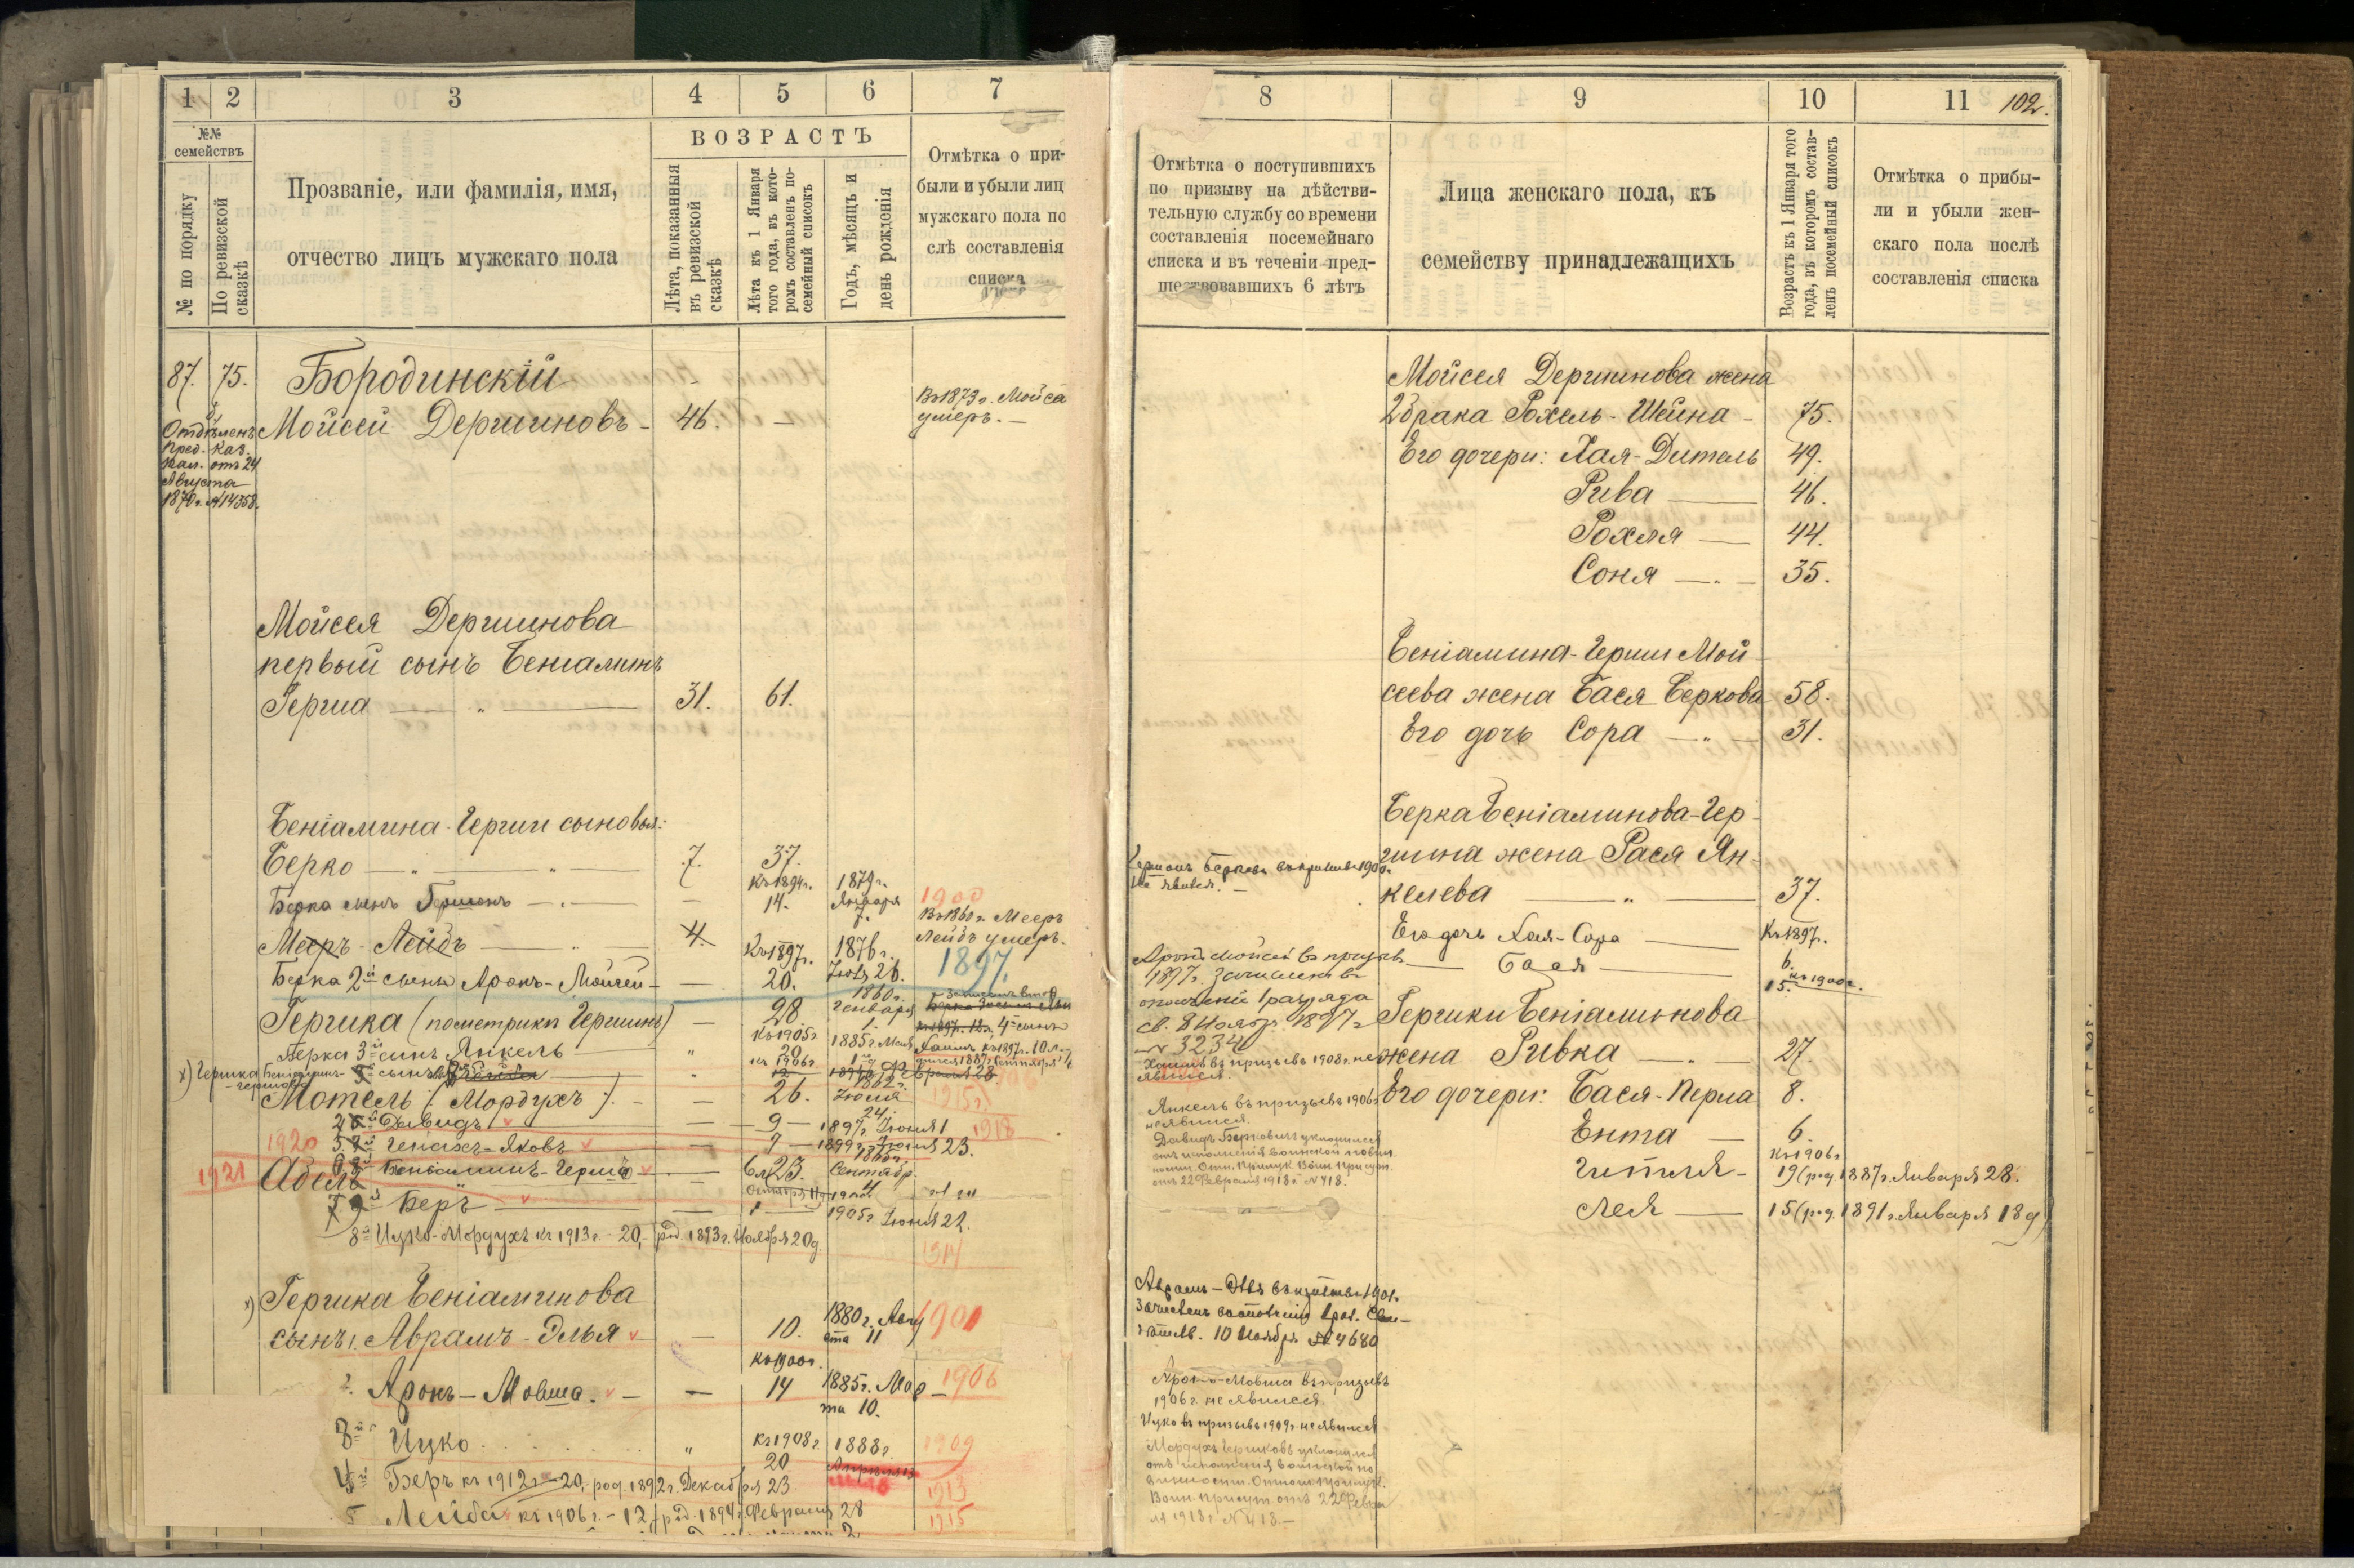 1 2 3 4 5 6 7
№№ семействъ
№ по порядку
По ревизской сказкѣ
Прозваніе, или фамилія, имя,
отчество лицъ мужскаго пола
ВОЗРАСТЪ
Лѣта, показанныя
въ ревизской
сказкѣ
Лѣта къ 1 Января
того года, въ кото-
ромъ составленъ по-
семейный списокъ
Годъ, мѣсяцъ и
день рожденія
Отмѣтка о при-
были и убыли лицъ
мужскаго пола по
слѣ составленія
списка
87. 75. Бородинскій
Мойсей Дершиновъ - 46. —
Отдѣленъ
пред. Каз.
пал. отъ 24
Августа
1870 г. №14358.
Въ 1873 г. Мойсе
умеръ. —
Мойсея Дершинова
первый сынъ Беніаминъ
Герша 31. 61.
Беніамина-Герши сыновья:
Берко 7. 37.
Берка сынъ Гершонъ — къ 1894 г. 14. 1879 г. Января 7. 1900
Мееръ-Лейбъ 4. Въ 1860 г. Мееръ
Лейбъ умеръ.
Берка 2й сынъ Аронъ-Мойсей — Къ 1897 г. 20. 1876 г. Іюля 26. 1897.
Гершка (по метрики Гершинъ) — 28 1860 г. Генваря 1.
Берка 3й сынъ Янкель къ 1905 г. 20 1885 г.
4й сынъ
Хаимъ къ 1897 г. 10 л.
х) Гершка
Мотель (Мордухъ). — 26. 1862 г. Іюня 24.
Давидъ — 9 — 1897 г. Іюня 1 1918
1920 Генахъ-Яковъ — 7 — 1899 г. Іюня 23.
1921 Беніаминъ-Герша
Абель 23. Сентябр. 4
Беръ — 1 1905 г. Іюня 22.
8й Ицко-Мордухъ къ 1913 г. - 20, род. 1893 г. Ноября 20 д.
1914
х) Гершка Беніаминова
сынъ 1. Аврамъ-Элья — 10. 1880 г. Авгу
ста 11 1901
2. Аронъ-Мовша. — къ 1900 г. 14 1885 г. Мар
та 10. 1906
3й Ицко " къ 1908 г. 20 1888 г. 1909
4й Беръ къ 1912 г. - 20, род. 1892 г. Декабря 23 1913
5 Лейба къ 1906 г. - 12 род. 1894 г. Февраля 28 1915
8 9 10 11 102.
Отмѣтка о поступившихъ
по призыву на дѣйстви-
тельную службу со времени
составленія посемейнаго
списка и въ теченіи пред-
шествовавшихъ 6 лѣтъ
Лица женскаго пола, къ
семейству принадлежащихъ
Возрастъ къ 1 Января того
года, въ которомъ состав-
ленъ посемейный списокъ
Отмѣтка о прибы-
ли и убыли жен-
скаго пола послѣ
составленія списка
Мойсея Дершинова жена
2 брака Рохель-Шейна - 75.
Его дочери: Хая-Дитель 49.
Рива 46.
Рохля 44.
Соня 35.
Беніамина-Герши Мой
сеева жена Бася Беркова 58.
Его дочь Сора 31.
Берка Беніаминова-Гер-
шина жена Рася Ян-
келева 37.
Его дочь Хая-Сора Къ 1897 г. 6.
Бася 15. къ 1900 г.
Гершки Беніаминова
жена Ривка 27.
Его дочери: Бася-Перла 8.
Ента 6.
Гитля - къ 1906 г. 19 (род. 1887 г. Января 28.
Лея 15 (род. 1891 г. Января 18 д)
Гершонъ Берковъ въ призывъ 1900 г.
не явился. —
Аронъ Мойсей въ призывъ
1897 г. зачисленъ въ
ополченіе 1 разряда
св. 8 Ноябр. 1897 г.
№ 3234
Хаимъ въ призывъ 1908 г. не
явился.
Янкель въ призывъ 1906 г.
не явился.
Давидъ Берковичъ уклонился
отъ исполненія воинской повин
ности. Отн. Прилук. Воин. Присут.
отъ 22 Февраля 1918 г. №418.
Аврамъ-Элья въ призывъ 1901 г.
зачисленъ въ ополченіе 1 раз. Сви-
дѣтел. 10 Ноября №4680
Аронъ-Мовша въ призывъ
1906 г. не явился.
Ицко въ призывъ 1909 г. не явился
Мордухъ Гершковъ уклонился
отъ исполненія воинской по
винности. Отнош. Прилук.
Воин. Присут. отъ 22 Февра
ля 1918 г. №418.—